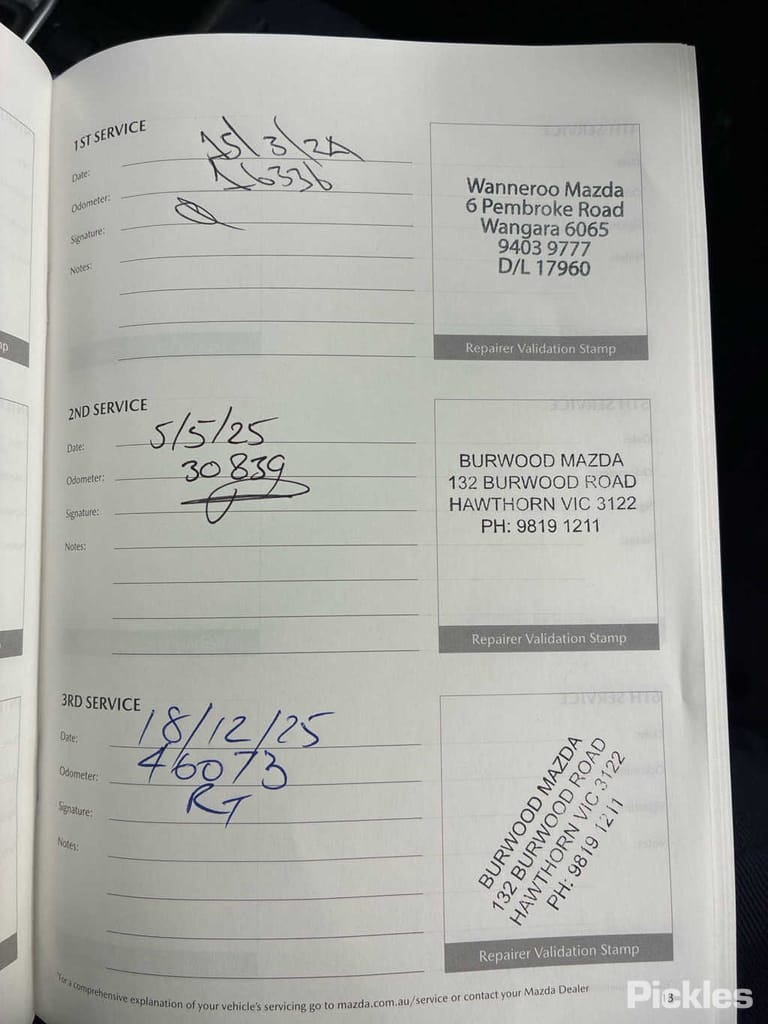 1ST SERVICE
Date: 15/3/24
Odometer: 16336
Signature:
Notes:
Wanneroo Mazda
6 Pembroke Road
Wangara 6065
9403 9777
D/L 17960
Repairer Validation Stamp
2ND SERVICE
Date: 5/5/25
Odometer: 30839
Signature:
Notes:
BURWOOD MAZDA
132 BURWOOD ROAD
HAWTHORN VIC 3122
PH: 9819 1211
Repairer Validation Stamp
3RD SERVICE
Date: 18/12/25
Odometer: 46073
Signature: RT
Notes:
BURWOOD MAZDA
132 BURWOOD ROAD
HAWTHORN VIC 3122
PH: 9819 1211
Repairer Validation Stamp
*For a comprehensive explanation of your vehicle's servicing go to mazda.com.au/service or contact your Mazda Dealer
13
Pickles